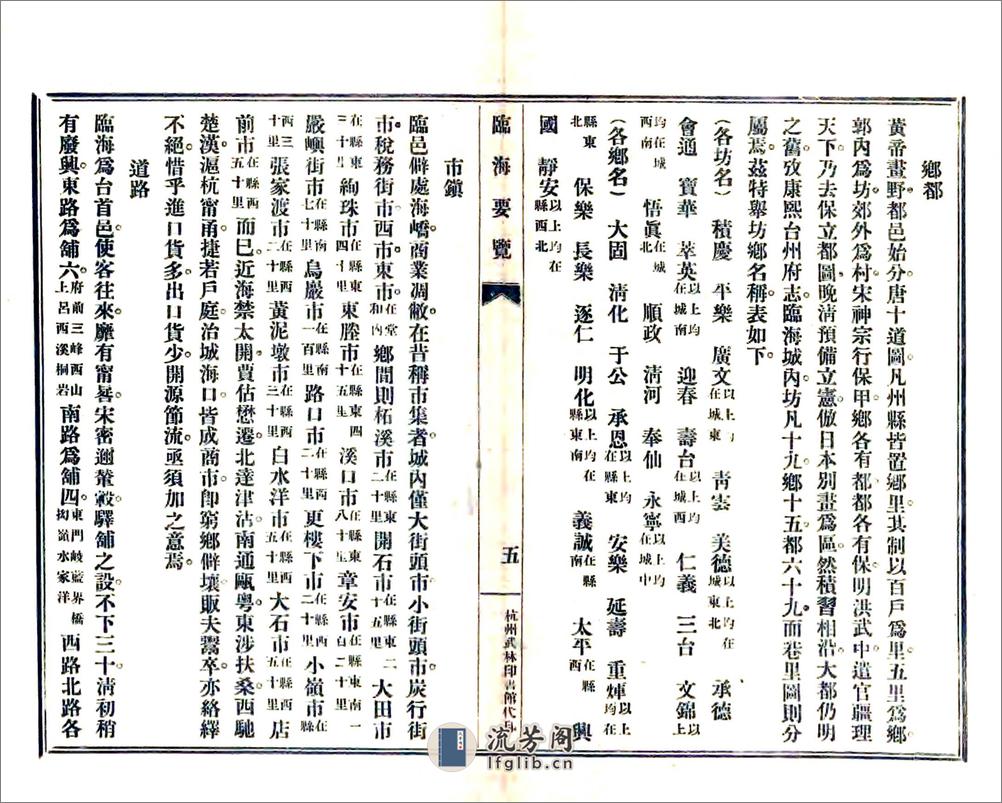 鄉都
黃帝畫野都邑始分唐十道圖凡州縣皆置鄉里其制以百戶爲里五里爲鄉
郭內爲坊郊外爲村宋神宗行保甲鄉各有都都各有保明洪武中遣官疆理
天下乃去保立都圖晚淸預備立憲倣日本別畫爲區然積習相沿大都仍明
之舊攷康熙台州府志臨海城內坊凡十九鄉十五都六十九而巷里圖則分
屬焉茲特舉坊鄉名稱表如下
(各坊名) 積慶 平樂 廣文以上均在城東 靑雲 美德以上均在城東北 承德
會通 寶華 萃英以上均在城南 迎春 壽台以上均在城西 仁義 三台 文錦以上
均在城西南 悟眞在城北 順政 淸河 奉仙 永寧以上均在城中
(各鄉名) 大固 淸化 于公 承恩以上均在縣東 安樂 延壽 重煇以上均在
縣東北 保樂 長樂 逐仁 明化以上均在縣東南 義誠在縣南 太平在縣西 興
國 靜安以上均在縣西北
臨海要覽
五
杭州武林印書館代印
市鎮
臨邑僻處海嶠商業凋敝在昔稱市集者城內僅大街頭市小街頭市炭行街
市稅務街市西市東市在堂和內鄉間則柘溪市在縣東二十里開石市在縣東二十五里大田市
在縣東三十里絢珠市四十里東塍市在縣東四十五里溪口市在縣東八十里章安市在縣東南一百二十里
嚴嶼街市在縣南七十里烏巖市在縣南一百里路口市在縣西更樓下市在縣西二十里小嶺市在縣
西三十里張家渡市在縣西二十里黃泥墩市在縣西三十里白水洋市在縣西五十里大石市在縣西五十里店
前市在縣西五十里而已近海禁太開賈估懋遷北達津沽南通甌粵東涉扶桑西馳
楚漢滬杭甯甬捷若戶庭治城海口皆成商市卽窮鄉僻壤販夫鬻卒亦絡繹
不絕惜乎進口貨多出口貨少開源節流亟須加之意焉
道路
臨海爲台首邑使客往來靡有甯晷宋密邇輦轂驛舖之設不下三十淸初稍
有廢興東路爲舖六府前三峰西山上呂西溪桐岩南路爲舖四東門岐藍界橋坳嶺水家洋西路北路各
流芳阁
lfglib.cn